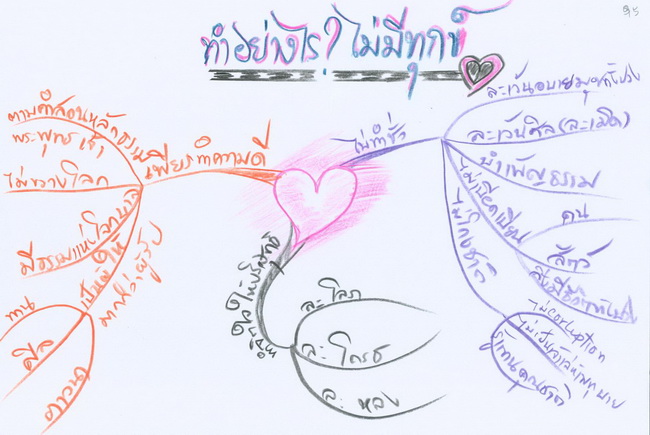 95
ทำอย่างไร? ไม่มีทุกข์
เพียรทำความดี
ตามคำสอนหลักธรรม
พระพุทธเจ้า
ไม่ขวางโลก
มีธรรมแห่งโลกบาล
เป็นผู้ให้
มากกว่าผู้รับ
ทาน
ศีล
ภาวนา
ไม่ทำชั่ว
ละเว้นอบายมุขทั้งปวง
ละเว้นศีล (ละเมิด)
บำเพ็ญธรรม
ไม่เบียดเบียน
คน
สัตว์
ไม่โกงชาติ
ไม่corruption
รู้แทนคุณชาติ
ทำจิตใจให้บริสุทธิ์
ละ โลภ
ละ โกรธ
ละ หลง